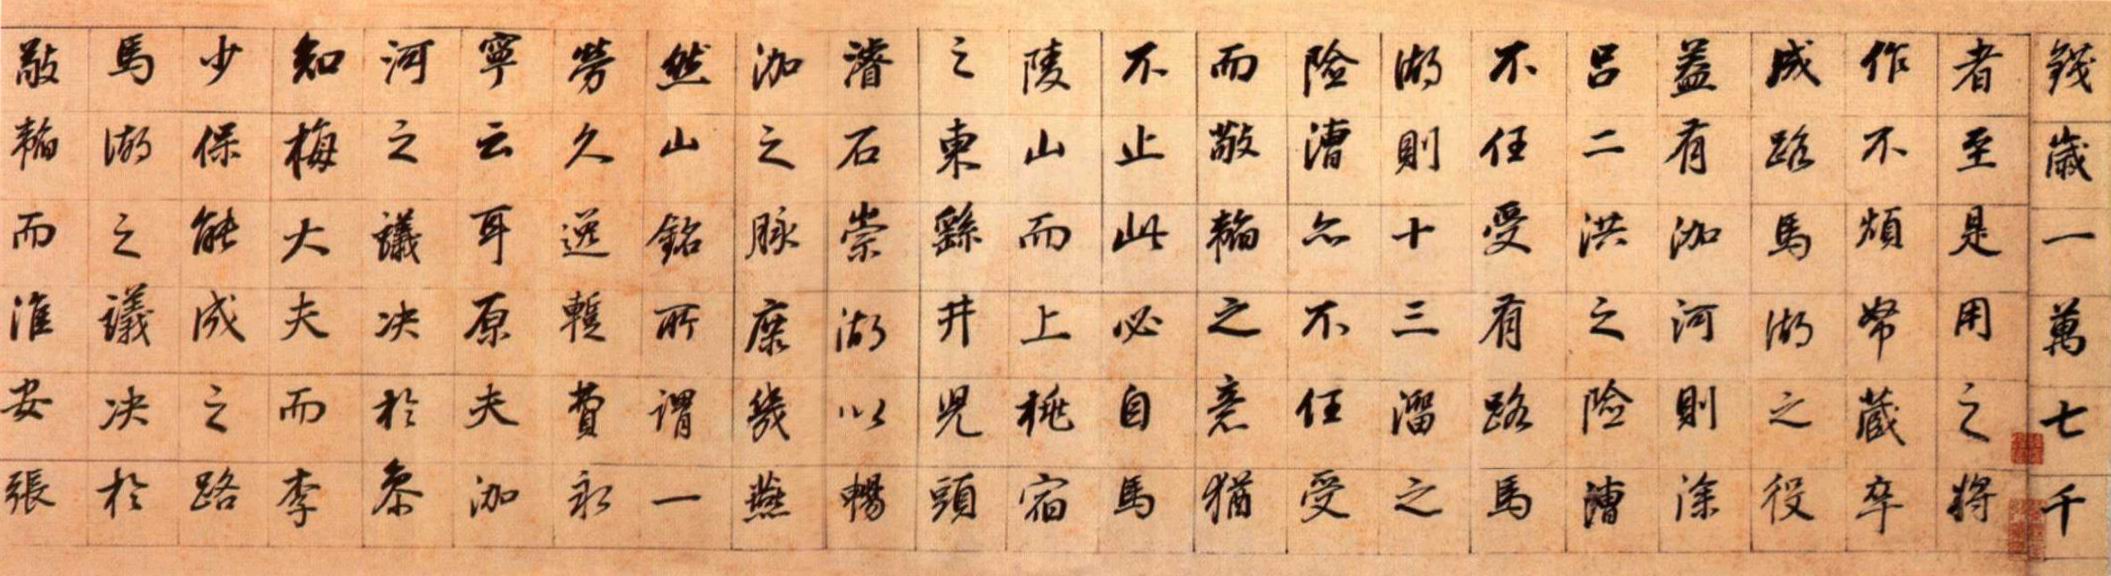 錢歲一萬七千
者至是用之將
作不煩帑藏卒
成路馬湖之役
蓋有泇河則淦
呂二洪之險漕
不任受有路馬
湖則十三溜之
險漕亦不任受
而敬韜之意猶
不止此必自馬
陵山而上桃宿
之東繇井兒頭
濬石崇湖以暢
泇之脉庶幾燕
然山銘所謂一
勞久逸暫費永
寧云耳原夫泇
河之議决於參
知梅大夫而李
少保能成之路
馬湖之議决於
敬韜而淮安張